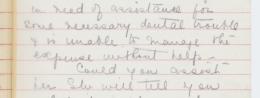 in need of assistance for
some necessary dental trouble
& is unable to manage the
expense without help -
Could you assist
her. She will tell you